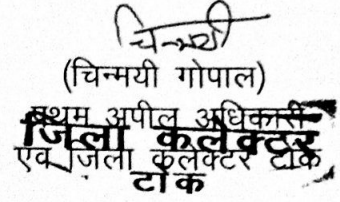 चिन्मयी
(चिन्मयी गोपाल)
प्रथम अपील अधिकारी
जिला कलेक्टर
एवं जिला कलेक्टर टोंक
टोंक